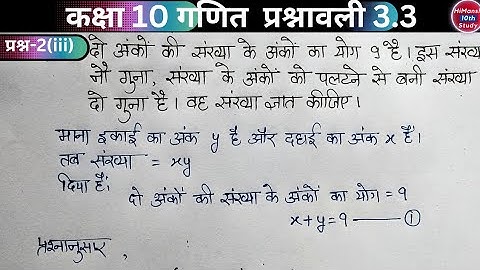 कक्षा 10 गणित प्रश्नावली 3.3
HiMansh
10th
Study
प्रश्न-2(iii)
दो अंकों की संख्या के अंकों का योग 9 है। इस संख्य
नौ गुना, संख्या के अंकों को पलटने से बनी संख्या
दो गुना है। वह संख्या ज्ञात कीजिए।
माना इकाई का अंक y है और दहाई का अंक x है।
तब संख्या = xy
दिया है:
दो अंकों की संख्या के अंकों का योग = 9
x+y=9 ——— ①
प्रश्नानुसार,